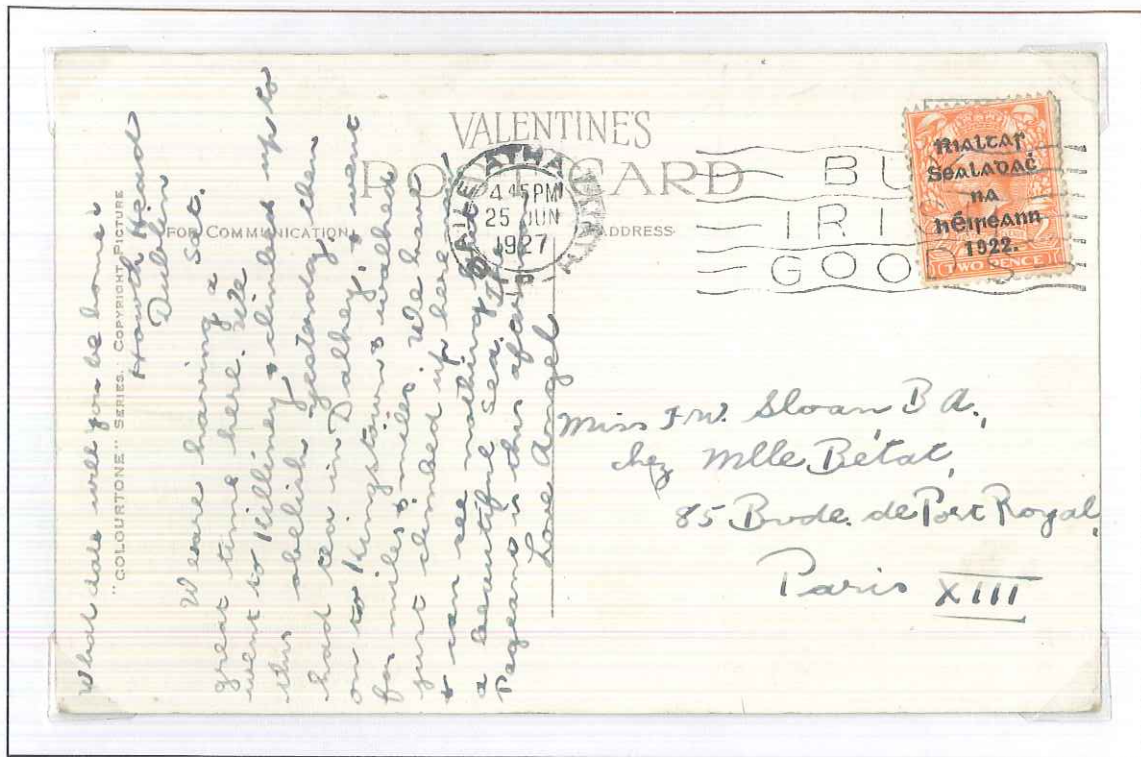 VALENTINE'S
POST CARD
FOR COMMUNICATION
ADDRESS
"COLOURTONE" SERIES. COPYRIGHT PICTURE
BAILE ATHA
4 45PM
25 JUN
1927
BU
IRI
GOO S
Rialtas
Sealadaċ
na
hÉireann
1922.
TWO PENCE
What date will you be home?
Howth Head
Dublin
Sat.
We are having a
great time here. We
went to Killiney & climbed up to
this obelisk yesterday, then
had tea in Dalkey, & went
on to Kingstown & walked
for miles & miles. We have
just climbed up here now
& can see nothing but
a beautiful sea. The
Pageant is this afternoon
Love Angel
Miss F.W. Sloan, B A.,
chez Mlle Bétat,
85 Bvde. de Port Royal,
Paris XIII